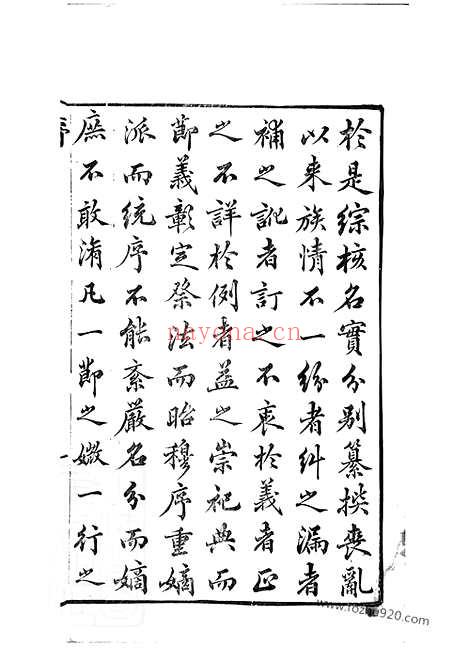 於是綜核名實分別纂㨂喪亂
以來族情不一紛者糾之漏者
補之訛者訂之不衷於義者正
之不詳於例者益之崇祀典而
節義彰定祭法而昭穆序重嫡
派而統序不能紊嚴名分而嫡
庶不敢淆凡一節之媺一行之
序
一
naydna.cn
www.fozhu920.com